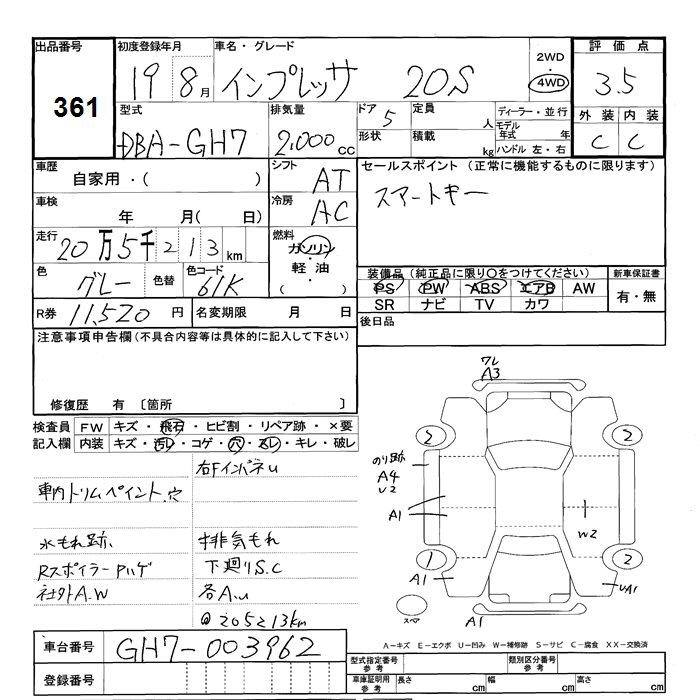 出品番号 361
初度登録年月 19 8月
車名・グレード インプレッサ 20S
2WD・4WD
評価点 3.5
外装 C 内装 C
型式 DBA-GH7
排気量 2.000cc
ドア 5 形状
定員 人 積載 kg
ディーラー・並行
モデル年式 年
ハンドル 左・右
車歴 自家用・( )
シフト AT
セールスポイント (正常に機能するものに限ります)
スマートキー
車検 年 月( 日)
冷房 AC
走行 20万5千213km
燃料 ガソリン・軽油・( )
色 グレー 色替 色コード 61K
装備品 (純正品に限り○をつけてください)
PS PW ABS エアB AW
SR ナビ TV カワ
新車保証書 有・無
R券 11,520円 名変期限 月 日
後日品
注意事項申告欄(不具合内容等は具体的に記入して下さい)
修復歴 有 〔箇所 〕
検査員記入欄
FW キズ・飛石・ヒビ割・リペア跡・×要
内装 キズ・汚レ・コゲ・穴・スレ・キレ・破レ
右FインパネU
車内トリムペイント、穴
水もれ跡、
排気もれ
RスポイラーPハゲ
下廻りS.C
社外A.W
各A.U
@205213km
ワレ
A3
2
2
のり跡
A4
U2
A1
W2
1
2
A1
UA1
スペア
A1
A-キズ E-エクボ U-凹み W-補修跡 S-サビ C-腐食 XX-交換済
車台番号 GH7-003962
登録番号
型式指定番号 参考
類別区分番号 参考
車庫証明用 参考 長さ cm 幅 cm 高さ cm